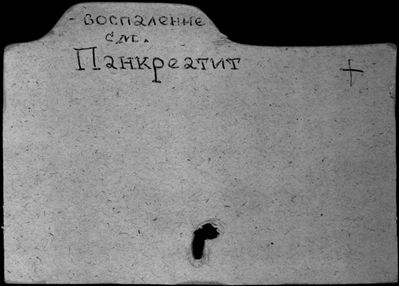 воспаление
см.
Панкреатит
+